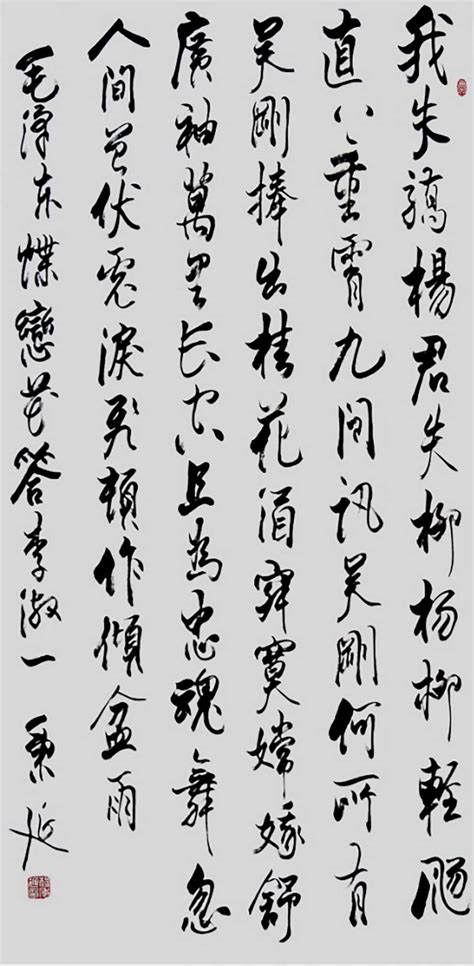 我失驕楊君失柳杨柳輕颺
直上重霄九问訊吴剛何所有
吴剛捧出桂花酒寂寞嫦娥舒
廣袖萬里长空且為忠魂舞忽
人間曾伏虎淚飛頓作傾盆雨
毛泽东蝶戀花答李淑一 秉延